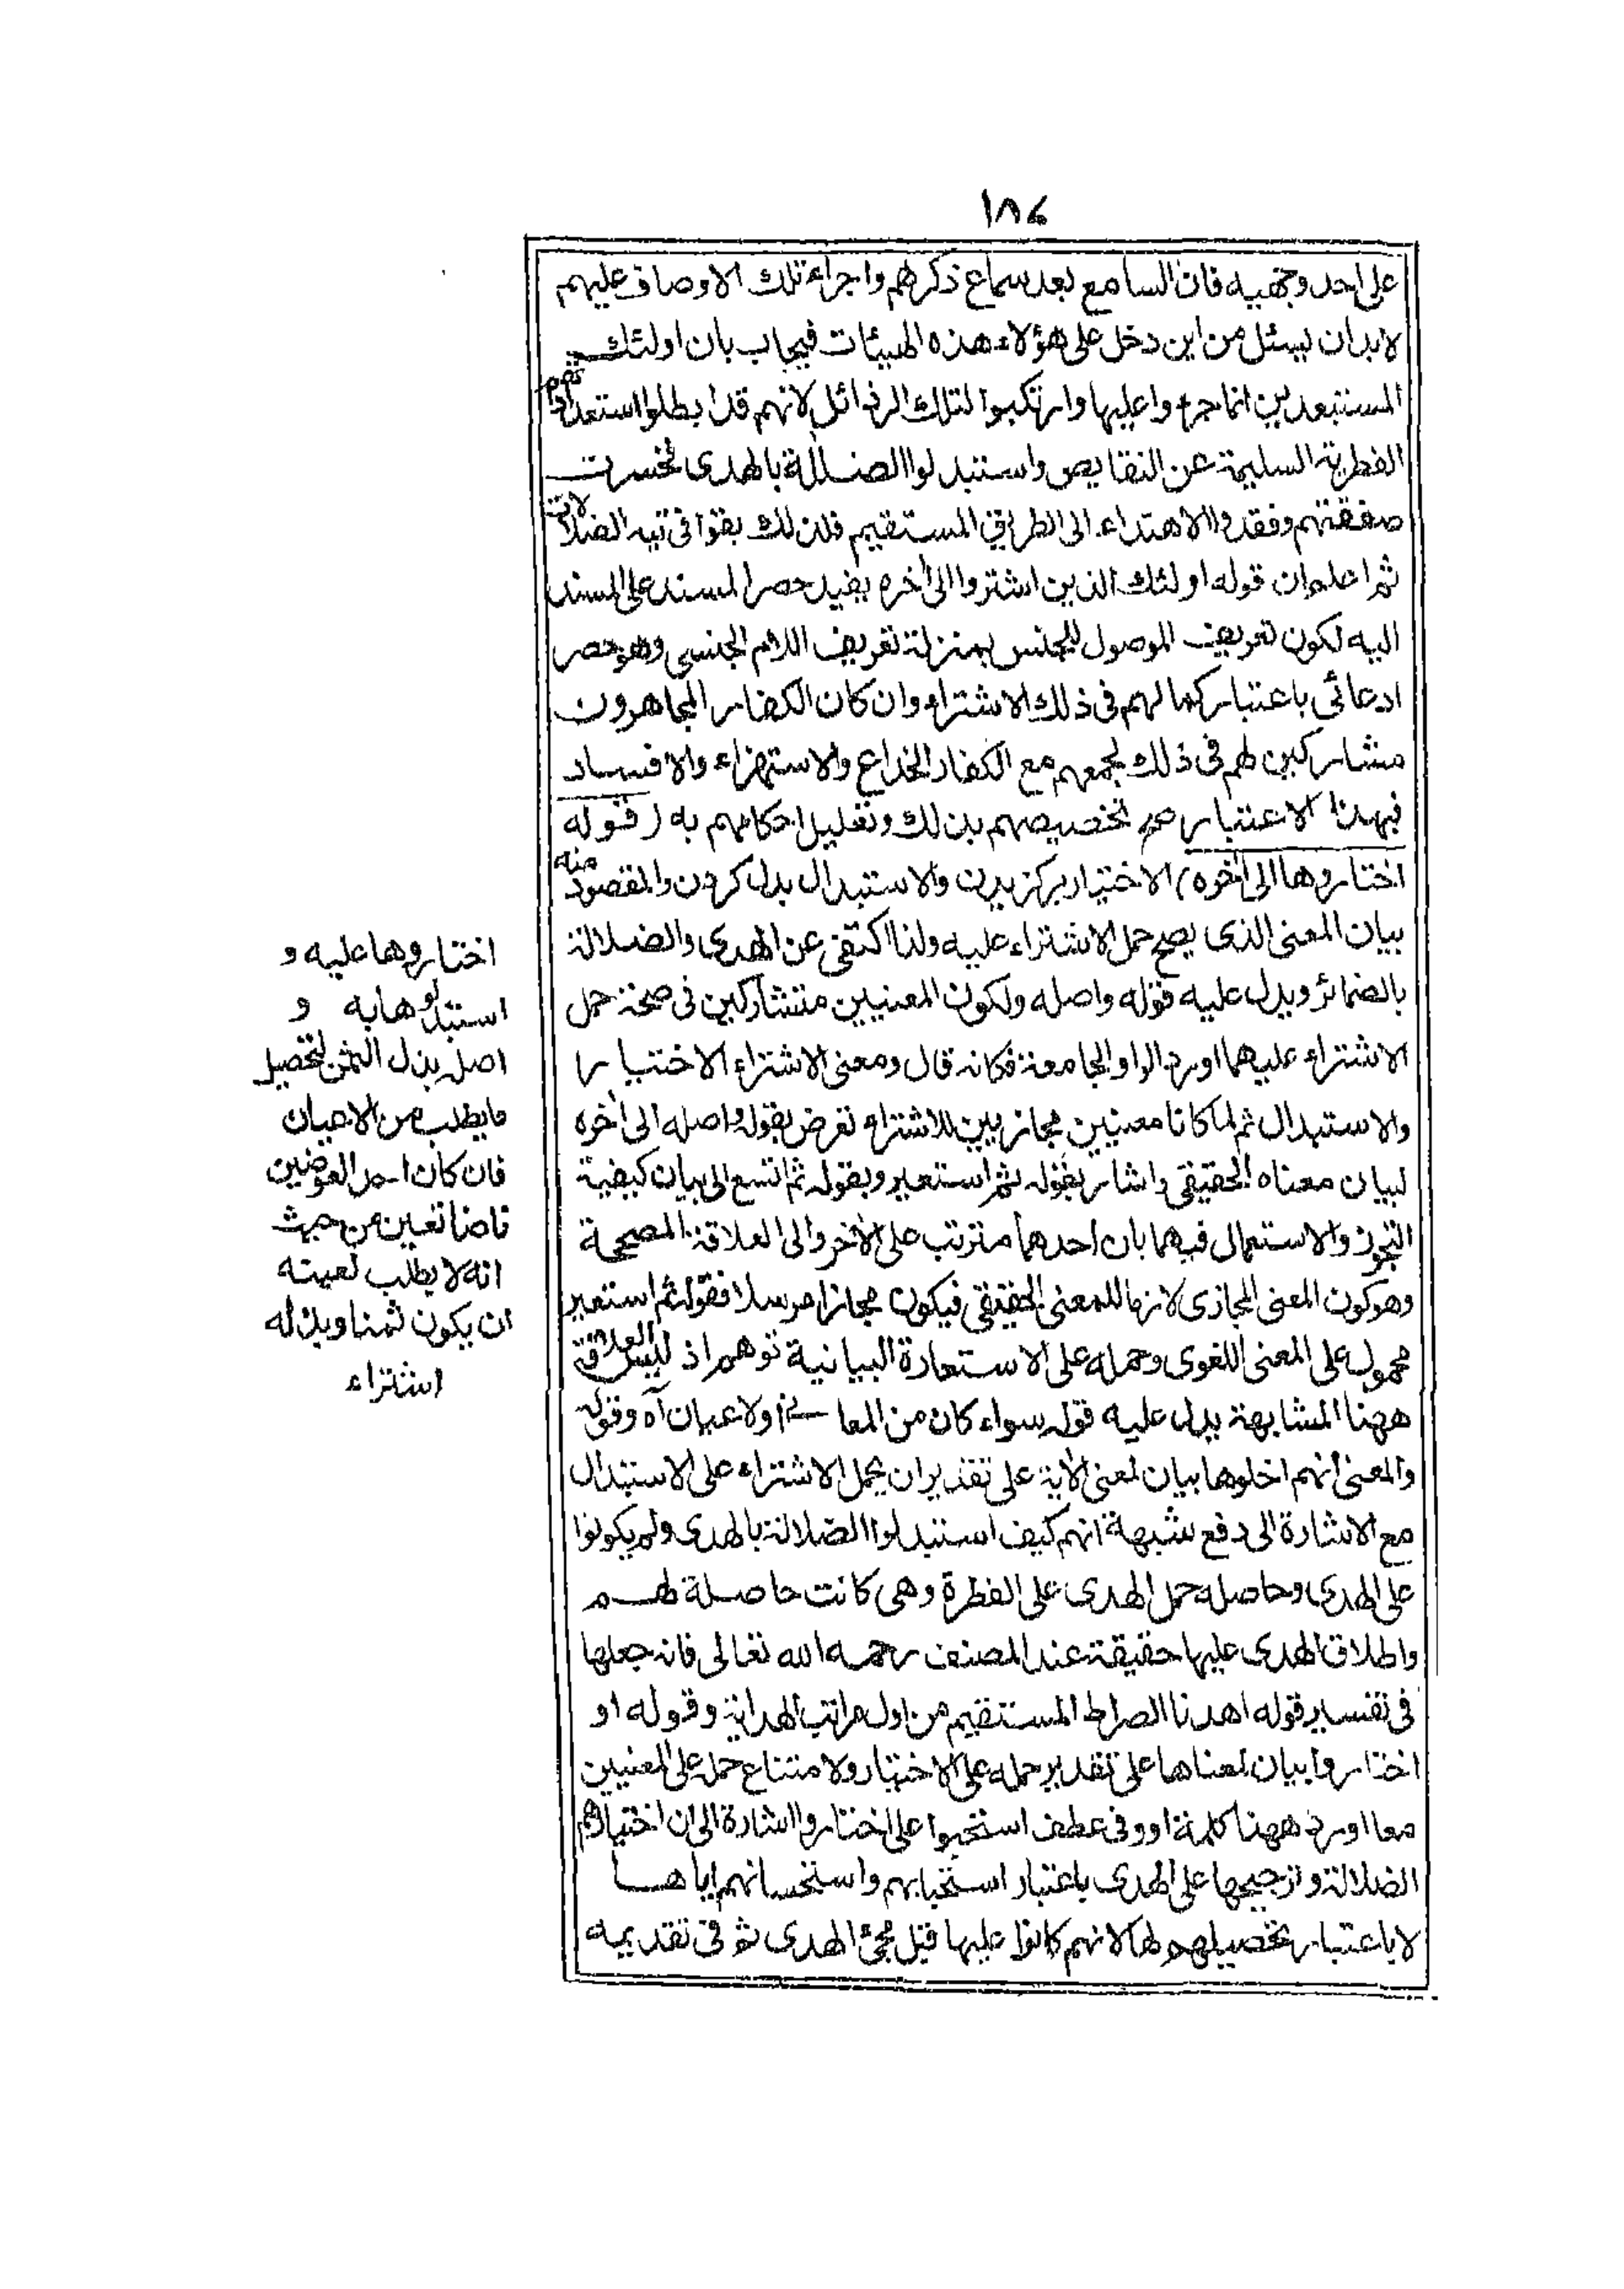 ١٨٦
على احد وجهيه فان السامع بعد سماع ذكرهم واجراء تلك الاوصاف عليهم
لابد ان يسئل من اين دخل على هؤلاء هذه الهيئات فيجاب بان اولئك
المستبعدين انما جرءوا عليها وارتكبوا لتلك الرذائل لانهم قد ابطلوا استعداداتهم
الفطرية السليمة عن النقايص واستبدلوا الضلالة بالهدى فخسرت
صفقتهم وفقدوا الاهتداء الى الطريق المستقيم فلذلك بقوا فى تيه الضلالات
ثم اعلم ان قوله اولئك الذين اشتروا الى أخره يفيد حصر المسند على المسند
اليه لكون تعريف الموصول للجنس بمنزلة تعريف اللام الجنسى وهو حصر
ادعائى باعتبار كمالهم فى ذلك الاشتراء وان كان الكفار المجاهرون
مشاركين لهم فى ذلك لجمعهم مع الكفار الخداع والاستهزاء والافساد
فبهذا الاعتبار صح تخصيصهم بذلك وتعليل احكامهم به (قوله
اختاروها الى أخره) الاختيار برگزیدن والاستبدال بدل كردن والمقصود منه
بيان المعنى الذى يصح حمل الاشتراء عليه ولذا اكتفى عن الهدى والضلالة
بالضمائر ويدل عليه قوله واصله ولكون المعنيين متشاركين فى صحة حمل
الاشتراء عليهما اورد الواو الجامعة فكانه قال ومعنى الاشتراء الاختيار
والاستبدال ثم لما كانا معنيين مجازيين للاشتراء تعرض بقوله واصله الى أخره
لبيان معناه الحقيقى واشار بقوله ثم استعير وبقوله ثم اتسع الى بيان كيفية
التجوز والاستعمال فيهما بان احدهما مترتب على الأخر والى العلاقة المصححة
وهو كون المعنى المجازى لازما للمعنى الحقيقى فيكون مجازا مرسلا فقوله ثم استعير
محمول على المعنى اللغوى وحمله على الاستعارة البيانية توهم اذ ليس العلاقة
ههنا المشابهة يدل عليه قوله سواء كان من المعانى اولاعيان آه وقوله
والمعنى انهم اخلوها بيان لمعنى الأية على تقدير ان يحمل الاشتراء على الاستبدال
مع الاشارة الى دفع شبهة انهم كيف استبدلوا الضلالة بالهدى ولم يكونوا
على الهدى وحاصله حمل الهدى على الفطرة وهى كانت حاصلة لهم
واطلاق الهدى عليها حقيقة عند المصنف رحمه الله تعالى فانه جعلها
فى تفسير قوله اهدنا الصراط المستقيم من اول مراتب الهداية وقوله او
اختاروا بيان لمعناها على تقدير حمله على الاختيار ولامتناع حمله على المعنيين
معا اورد ههنا كلمة او وفى عطف استحبوا على اختاروا اشارة الى ان اختيارهم
الضلالة وترجيحها على الهدى باعتبار استحبابهم واستحسانهم اياها
لا باعتبار تحصيلهم لها لانهم كانوا عليها قبل مجئ الهدى ثم فى تقديمه
اختاروها عليه و
استبدلوها به و
اصله بذل الثمن لتحصيل
ما يطلب من الاعيان
فان كان احد العوضين
ناضا تعين من حيث
انه لا يطلب لعينه
ان يكون ثمنا وبذله
اشتراء